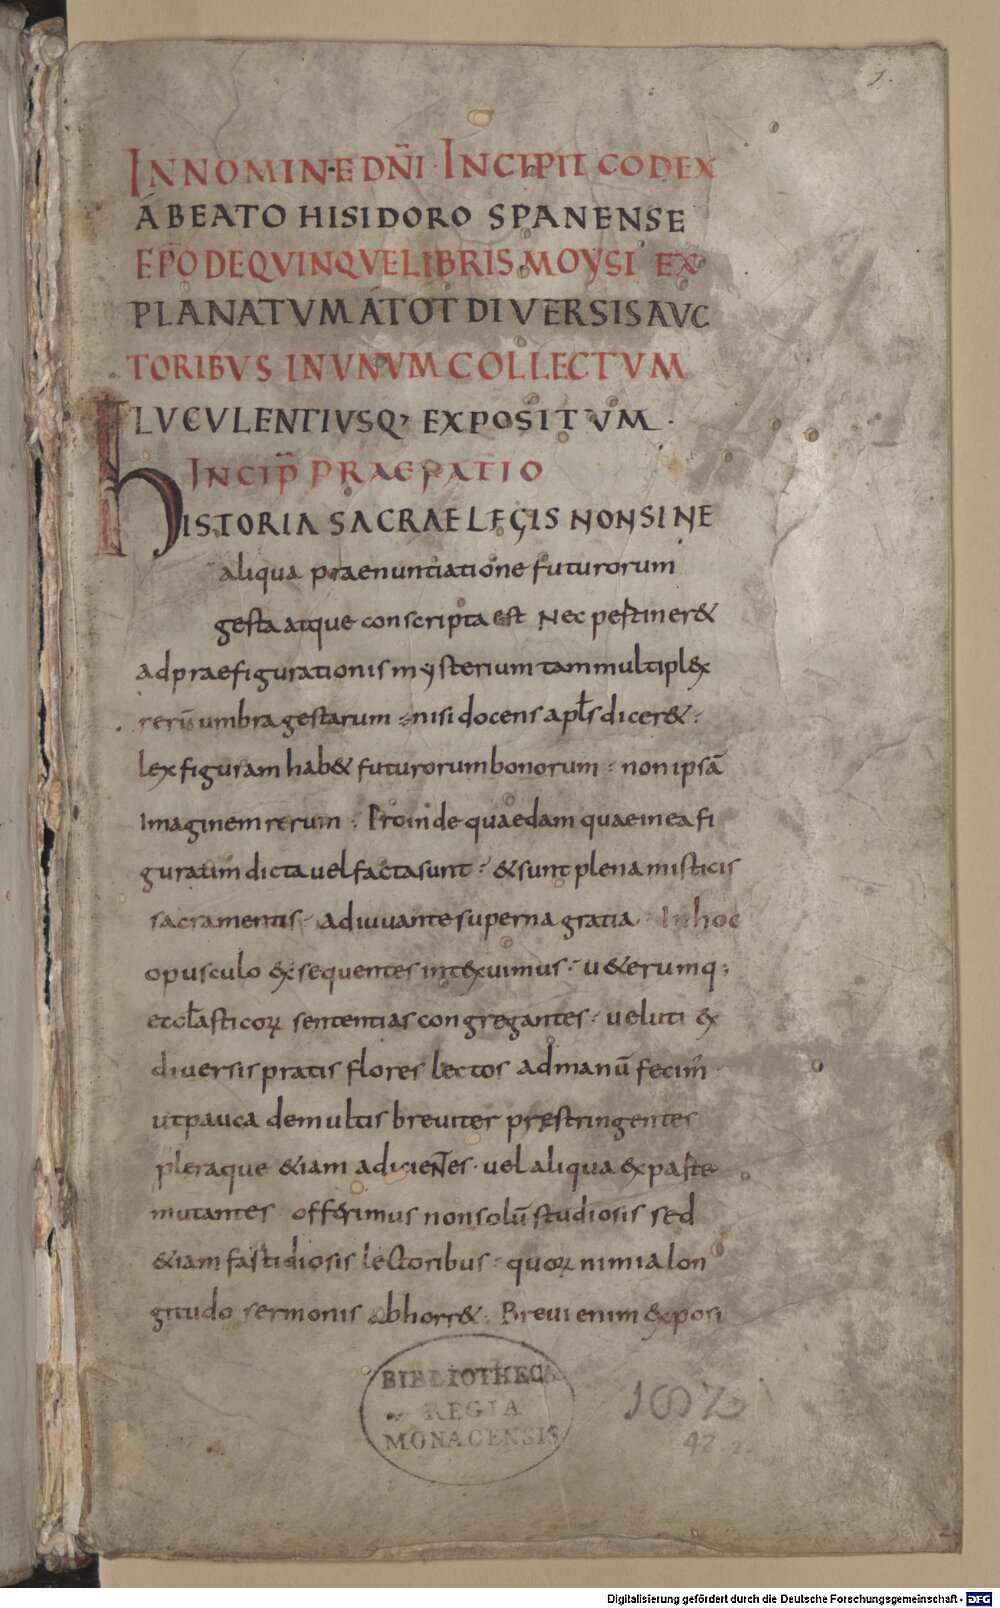 1.
INNOMINE DN̄I INCIPIT CODEX
ABEATO HISIDORO SPANENSE
EP̄O DEQVINQVELIBRIS MOYSI EX
PLANATVM ATOT DIVERSIS AVC
TORIBVS INVNVM COLLECTVM
LVCVLENTIVSQ; EXPOSITVM .
INCIP̄ PRAEFATIO
HISTORIA SACRAE LEGIS NON SINE
aliqua praenuntiatione futurorum
gesta atque conscripta est Nec pestiner&
ad praefigurationis mysterium tam multiplex
rerū umbra gestarum nisi docens apl̄s dicer&
lex figuram hab& futurorum bonorum non ipsā
Imaginem rerum Proinde quaedam quae in ea fi
guratim dicta uel facta sunt & sunt plena misticis
sacramentis adiuuante superna gratia In hoc
opusculo exsequentes intexuimus u&erumq;
eccl̄asticoꝝ sententias congregantes ueluti ex
diuersis pratis flores lectos ad manū fecim̄
ut pauca de multis breuiter praestringentes
pleraque &iam adicientes uel aliqua ex parte
mutantes offerimus non solū studiosis sed
&iam fastidiosis lectoribus quoꝝ nimia lon
gitudo sermonis abhorr& Breui enim exposi
BIBLIOTHECA
REGIA
MONACENSIS
Digitalisierung gefördert durch die Deutsche Forschungsgemeinschaft - DFG